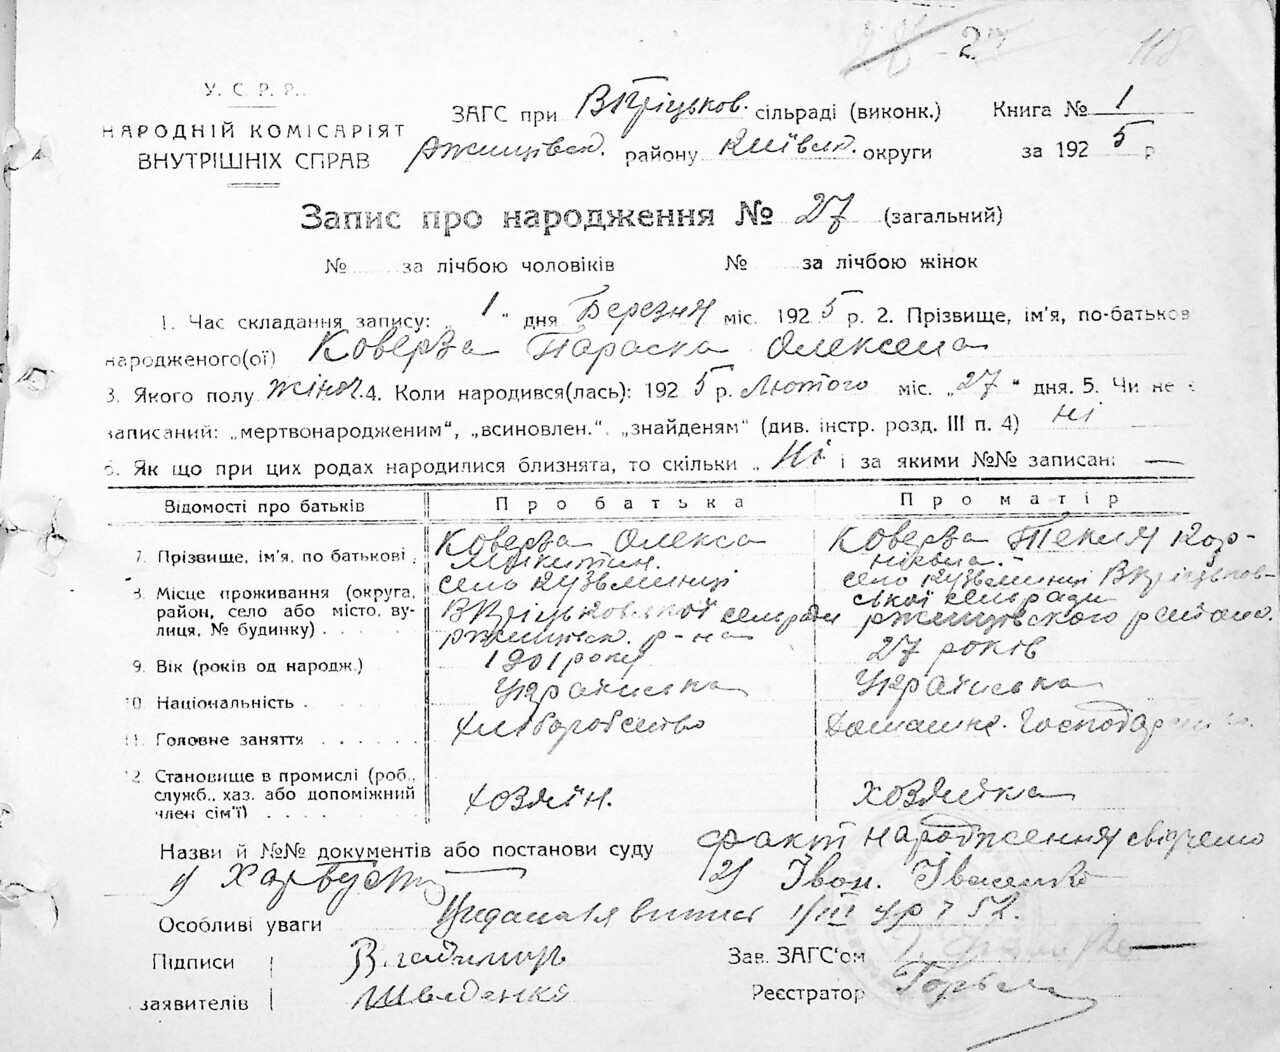 27
118
У. С. Р. Р.
НАРОДНІЙ КОМІСАРІЯТ
ВНУТРІШНІХ СПРАВ
ЗАГС при сільраді (виконк.) Книга № 1
Ржищівск. району Київск. округи за 1925 р
Запис про народження № 27 (загальний)
№ за лічбою чоловіків № за лічбою жінок
1. Час складання запису: „ 1 “ дня Березня міс. 1925 р. 2. Прізвище, ім'я, по-батьков
народженого(ої) Коверза Параска Олексеева
3. Якого полу жіноч. 4. Коли народився(лась): 1925 р. Лютого міс. „27“ дня. 5. Чи не є
записаний: „мертвонародженим“, „всиновлен.“, „знайденям“ (див. інстр. розд. III п. 4) ні
6. Як що при цих родах народилися близнята, то скільки „ Ні і за якими №№ записані —
Відомості про батьків Про батька Про матір
7. Прізвище, ім'я, по батькові . Коверза Олекса Микитин. Коверза Текля
8. Місце проживання (округа, район, село або місто, вулиця, № будинку) . . . . . село Кузьминці сельради Ржищівск. р-на село Кузьминці сельради Ржищовского
9. Вік (років од народж.) 1901 року 27 років
10. Національність . Українська Українська
11. Головне заняття . . . . . . Хліборобство Домашнє Господар
12. Становище в промислі (роб., служб., хаз. або допоміжний член сім'ї) . . . . хозяїн. хозяйка
Назви й №№ документів або постанови суду факт народження свідчемо
Іван.
Особливі уваги випис 1/III 52.
Підписи Владимир Зав. ЗАГС'ом
заявителів Шведенко Реєстратор